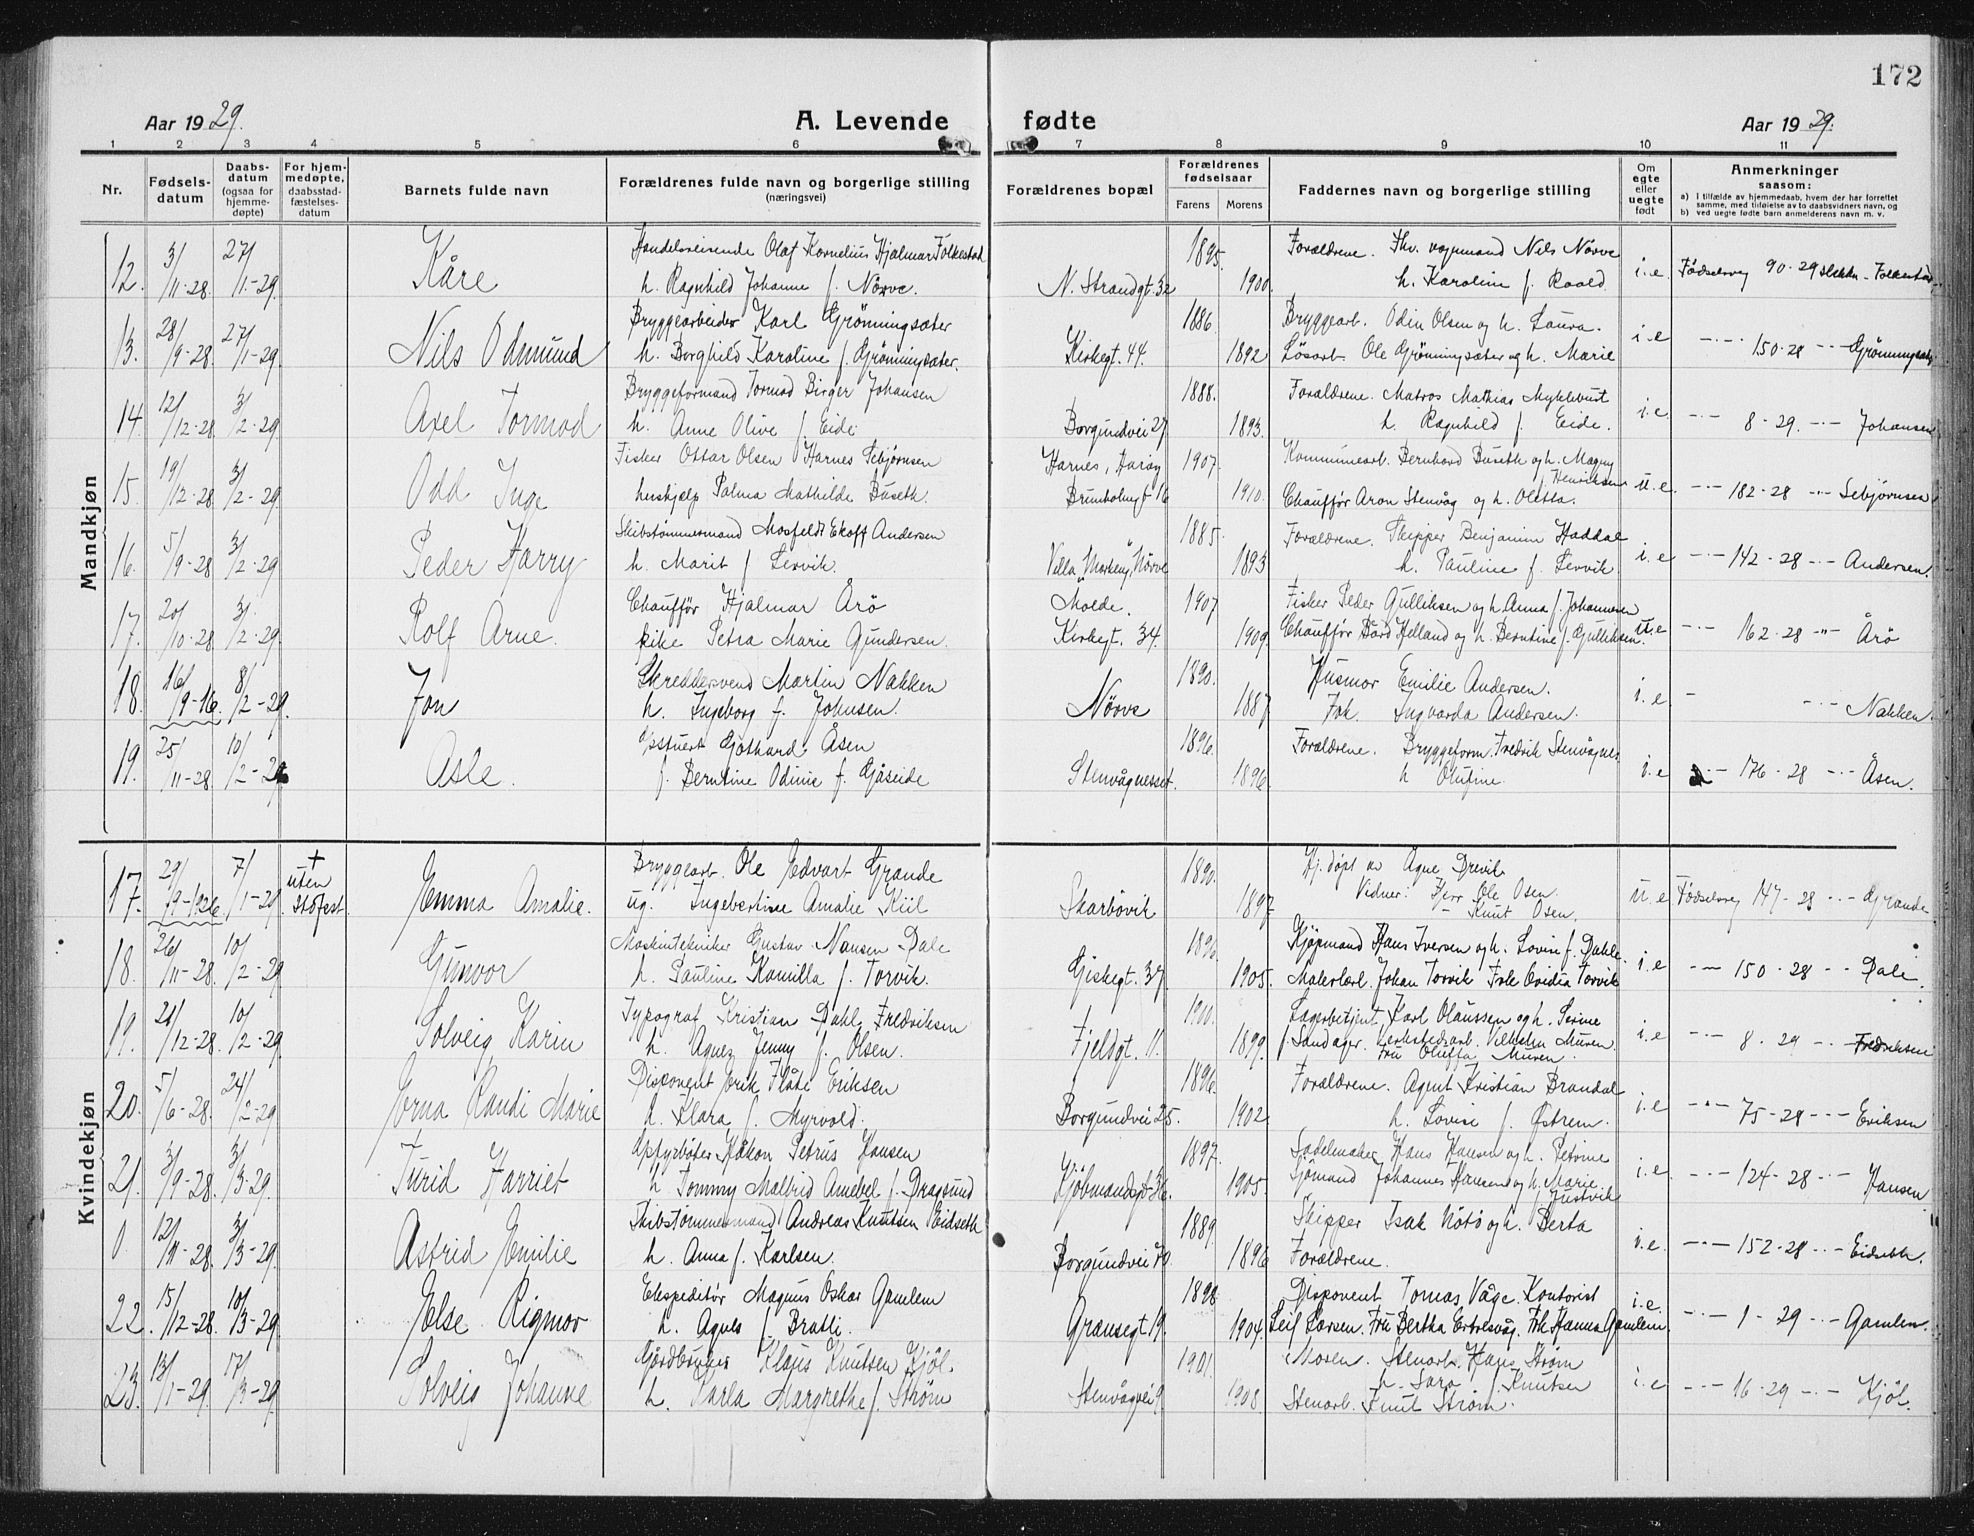 172
Aar 1929.
A. Levende fødte
Aar 1929.
1 2 3 4 5 6 7 8 9 10 11
Nr.
Fødsels-
datum
Daabs-
datum
(ogsaa for
hjemme-
døpte)
For hjem-
medøpte,
daabsstad-
fæstelses-
datum
Barnets fulde navn
Forældrenes fulde navn og borgerlige stilling
(næringsvei)
Forældrenes bopæl
Forældrenes
fødselsaar
Farens Morens
Faddernes navn og borgerlige stilling
Om
egte
eller
uegte
født
Anmerkninger
saasom:
a) I tilfælde av hjemmedaab, hvem der har forrettet
samme, med tilføielse av to daabsvidners navn, og
b) ved uegte fødte barn anmelderens navn m. v.
Mandkjøn
12. 3/11-28. 27/1-29. Kåre
Handelsreisende Olaf Kornelius Hjalmar Folkestad
h. Ragnhild Johanne f. Nörve.
N. Strandgt. 32 1895. 1900.
Forældrene. Fhv. vognmand Nils Nörve
h. Karoline f. Roald
i.e. Fødselsreg 90-29 Folkestad
13. 28/9-28. 27/1-29. Nils Odmund
Bryggearbeider Karl Grönningsæter
h. Borghild Karoline f. Grönningsæter.
Kirkegt. 44. 1886. 1892
Bryggearb. Odin Olsen og h. Laura.
Løsarb. Ole Grönningsæter og h. Marie
i.e. -"- 150-28 -"- Grönningsæter
14. 12/12-28. 3/2-29. Axel Tormod
Bryggeformand Tormod Birger Johansen
h. Anne Olive f. Eide
Borgundvei 27 1888. 1893.
Forældrene. Matros Mathias Myklebust
h. Ragnhild f. Eide.
i.e. -"- 8-29. -"- Johansen
15. 19/12-28. 3/2-29. Odd Inge
Fisker Ottar Olsen Harnes Sebjørnsen
hushjelp Palma Mathilde Buseth.
Harnes, Harøy 1907.
16 1910.
Kommunearb. Bernhard Buseth og h. Magny
Henriksen
Chauffør Aron Stenvåg og h. Oletta.
u.e. -"- 182-28 -"- Sebjørnsen
16. 5/9-28 3/2-29. Peder Harry
Skibstømmermand Mosfeldt Ekoff Andersen
h. Marit f. Lervik.
Villa "Morseng", Nörve 1885. 1893
Forældrene. Skipper Benjamin Haddal
h. Pauline f. Lervik.
i.e. -"- 142-28 -"- Andersen.
17. 20/10-28. 3/2-29. Rolf Arne.
Chauffør Hjalmar Årö
pike Petra Marie Gundersen.
Molde. 1907
Kirkegt. 34. 1909.
Fisker Peder Gulliksen og h. Anna f. Johannesen
Chauffør Bård Helland og h. Berntine f. Gulliksen.
u.e. -"- 162-28 -"- Årö
18. 16/9-16. 8/2-29. Jon
Skreddersvend Martin Nakken
h. Ingeborg f. Johnsen.
Nörve 1890. 1887
Husmor Emilie Andersen.
Frk. Ingvarda Andersen.
i.e. - -"- Nakken.
19. 25/11-28. 10/2-29 Asle.
Opstuert Gjothard Åsen
f. Berntine Odine f. Gjåseide
Stenvågnesset. 1896. 1896.
Forældrene. Bryggeform. Fredrik Stenvågnes
h Olufine.
i.e. -"- 176-28 -"- Åsen.
Kvindekjøn
17. 29/9-1926. 7/1-29. + uten stdfest. Emma Amalie.
Bryggearb. Ole Edvart Grande
ug. Ingebertine Amalie Kiil
Skarbövik 1890. 1897
Hj. døpt av Agne Drevik
Vidner: Herr Ole Osen.
- Knut Osen.
u.e. Fødselsreg 147-28 -"- Grande
18. 26/11-28. 10/2-29 Gunvor
Maskintekniker Gustav Nansen Dale
h. Pauline Kamilla f. Torvik.
Giskegt. 37. 1896. 1905.
Kjøpmand Hans Iversen og h. Lovise f. Dahle.
Malerlærl. Johan Torvik Frk Ovidia Torvik
i.e. -"- 150-28 -"- Dale.
19. 21/12-28. 10/2-29. Solveig Karin
Typograf Kristian Dahl Fredriksen
h. Agnes Jenny f. Olsen.
Fjeldgt. 11. 1900. 1899.
Lagerbetjent Karl Olaussen og h. Serine
f. Sandager. Verkstedsarb. Vilhelm Muren.
Fru Oluffa Muren.
i.e -"- 8-29 -"- Fredriksen
20. 5/6-28. 24/2-29 Erna Randi Marie
Disponent Erik Flåte Eriksen
h. Klara f. Myrvold.
Borgundvei 25. 1896. 1902.
Forældrene. Agent Kristian Brandal
h. Lovise f. Östrem.
i.e -"- 75-28 -"- Eriksen
21. 3/9-28. 3/3-29. Turid Harriet
Opfyrbøter Håkon Petrus Hansen
h Tommy Malfrid Annebel f. Dragsund
Kjöbmandsgt 36. 1897. 1905.
Sadelmaker Hans Hansen og h. Petrine
Sjömand Johannes Hansen og h. Marie
Justvik
i.e. -"- 124-28 -"- Hansen
0 12/11-28. 3/3-29. Astrid Emilie
Skibstømmermand Andreas Knutsen Eidseth
h. Anna f. Karlsen.
Borgundvei 70. 1889. 1896
Skipper Isak Nötö og h. Berta
Forældrene.
i.e. -"- 152-28 -"- Eidseth.
22. 15/12-28. 10/3-29. Else Rigmor
Ekspeditør Magnus Oskar Gamlem
h. Agnes f. Bratli.
Grænsegt 19. 1898 1904.
Disponent Tomas Våge. Kontorist
Leif Larsen. Fru Bertha Ertresvåg. Frk Hanna Gamlem.
i.e. -"- 1-29 -"- Gamlem.
23. 13/1-29. 17/3-29. Solveig Johanne
Gårdbruger Klaus Knutsen Kjöl.
h. Karla Margrethe f. Ström
Stenvågvei 9 1901. 1908.
Moren. Stenarb. Hans Ström
h. Sara f. Knutsen
Stenarb. Knut Ström.
i.e -"- 16-29 -"- Kjöl.